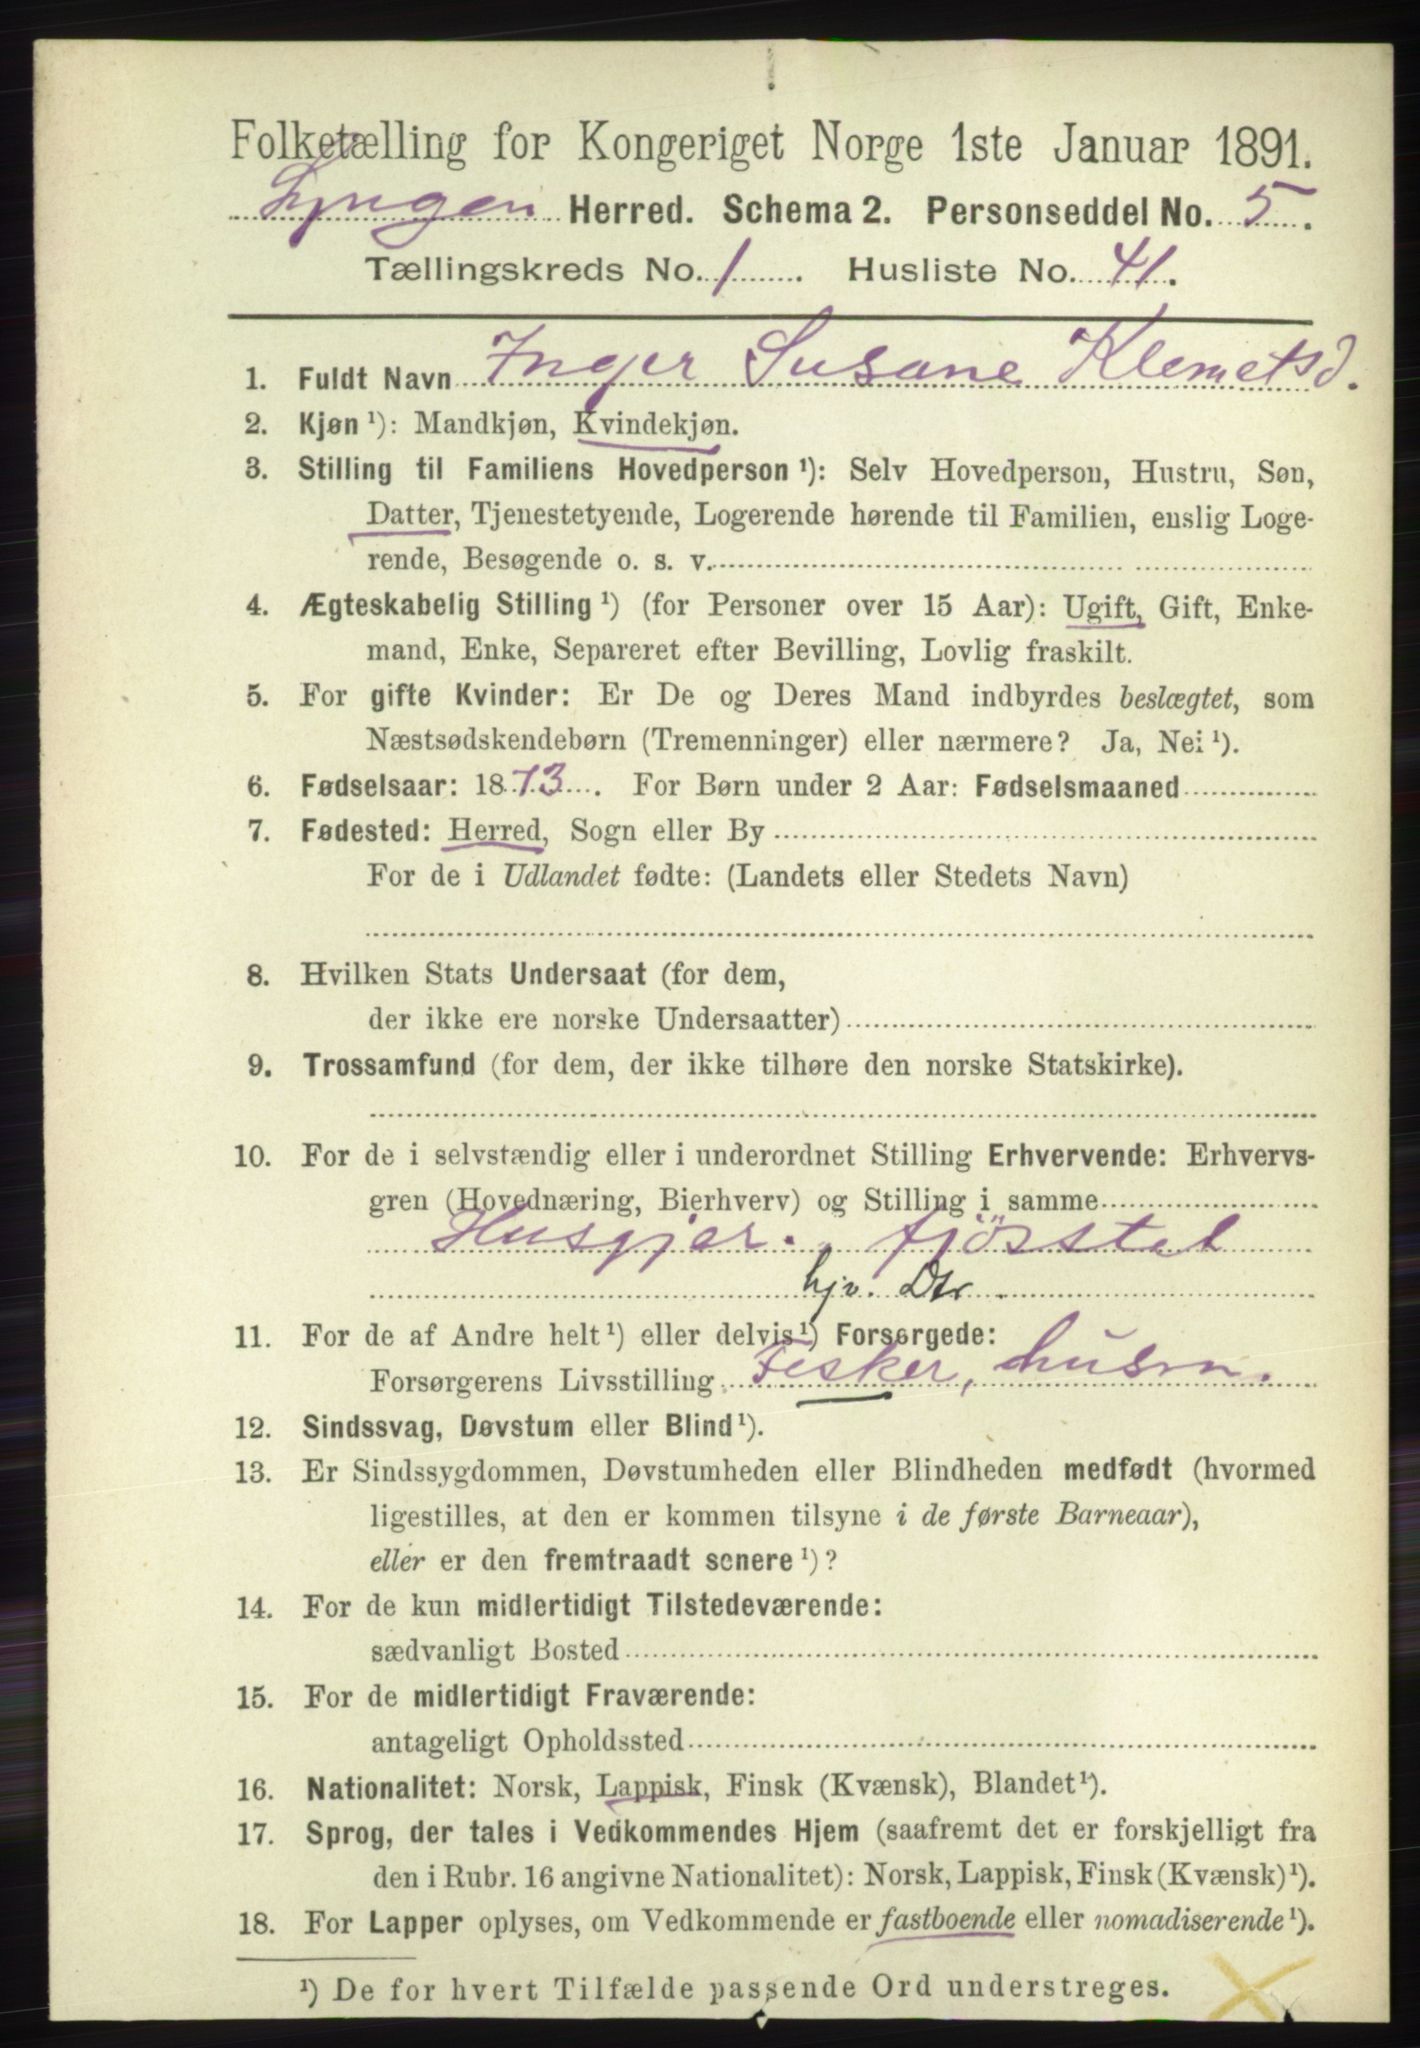 Folketælling for Kongeriget Norge 1ste Januar 1891.
Lyngen Herred. Schema 2. Personseddel No. 5.
Tællingskreds No. 1. Husliste No. 41.
1. Fuldt Navn Inger Susane Klemetsd.
2. Kjøn ¹): Mandkjøn, Kvindekjøn.
3. Stilling til Familiens Hovedperson ¹): Selv Hovedperson, Hustru, Søn,
Datter, Tjenestetyende, Logerende hørende til Familien, enslig Loge-
rende, Besøgende o. s. v.
4. Ægteskabelig Stilling ¹) (for Personer over 15 Aar): Ugift, Gift, Enke-
mand, Enke, Separeret efter Bevilling, Lovlig fraskilt.
5. For gifte Kvinder: Er De og Deres Mand indbyrdes beslægtet, som
Næstsødskendebørn (Tremenninger) eller nærmere? Ja, Nei ¹).
6. Fødselsaar: 1873. For Børn under 2 Aar: Fødselsmaaned
7. Fødested: Herred, Sogn eller By
For de i Udlandet fødte: (Landets eller Stedets Navn)
8. Hvilken Stats Undersaat (for dem,
der ikke ere norske Undersaatter)
9. Trossamfund (for dem, der ikke tilhøre den norske Statskirke).
10. For de i selvstændig eller i underordnet Stilling Erhvervende: Erhvervs-
gren (Hovednæring, Bierhverv) og Stilling i samme
Husgjer. fjösstel
hjv. Dtr.
11. For de af Andre helt ¹) eller delvis ¹) Forsørgede:
Forsørgerens Livsstilling Fisker, husm.
12. Sindssvag, Døvstum eller Blind ¹).
13. Er Sindssygdommen, Døvstumheden eller Blindheden medfødt (hvormed
ligestilles, at den er kommen tilsyne i de første Barneaar),
eller er den fremtraadt senere ¹)?
14. For de kun midlertidigt Tilstedeværende:
sædvanligt Bosted
15. For de midlertidigt Fraværende:
antageligt Opholdssted
16. Nationalitet: Norsk, Lappisk, Finsk (Kvænsk), Blandet ¹).
17. Sprog, der tales i Vedkommendes Hjem (saafremt det er forskjelligt fra
den i Rubr. 16 angivne Nationalitet): Norsk, Lappisk, Finsk (Kvænsk) ¹).
18. For Lapper oplyses, om Vedkommende er fastboende eller nomadiserende ¹).
¹) De for hvert Tilfælde passende Ord understreges.